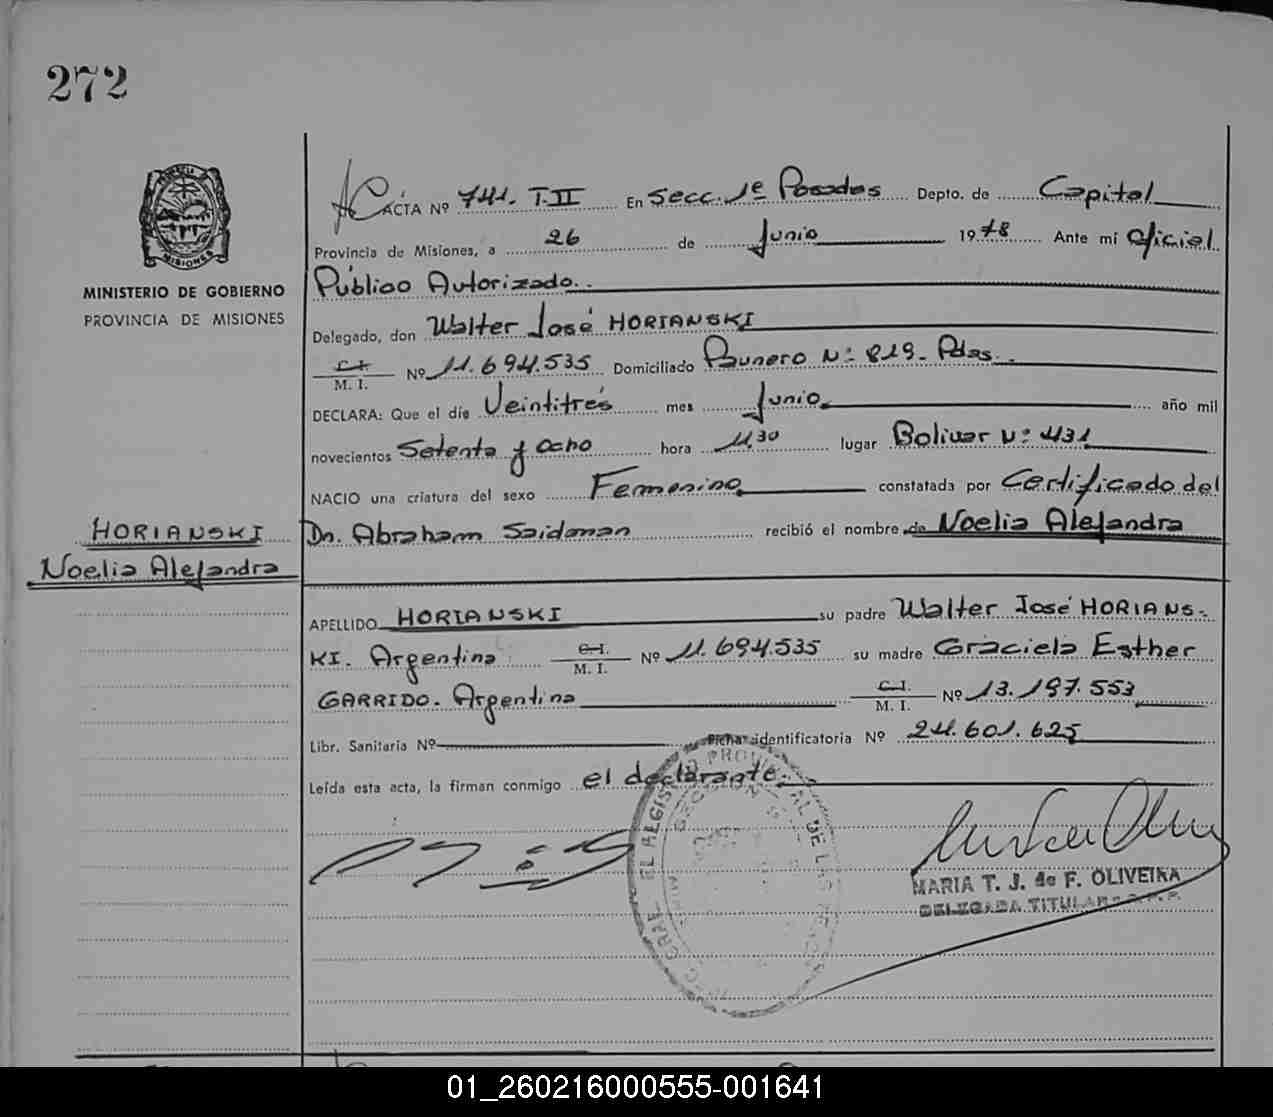 272
MISIONES
MINISTERIO DE GOBIERNO
PROVINCIA DE MISIONES
HORIANSKI
Noelia Alejandra
ACTA Nº 741. T.II En Secc. 1ª Posadas Depto. de Capital
Provincia de Misiones, a 26 de Junio 1978 Ante mi Oficial
Público Autorizado.
Delegado, don Walter José HORIANSKI
C.I. M. I. Nº 11.694.535 Domiciliado Nº 819- Pdas.
DECLARA: Que el día Veintitrés mes Junio año mil
novecientos Setenta y ocho hora 11,30 lugar Bolivar Nº 431
NACIO una criatura del sexo Femenino constatada por Certificado del
Dr. Abraham Saidman recibió el nombre de Noelia Alejandra
APELLIDO HORIANSKI su padre Walter José HORIANS-
KI. Argentino C.I. M. I. Nº 11.694.535 su madre Graciela Esther
GARRIDO. Argentina C.I. M. I. Nº 13.197.553
Libr. Sanitaria Nº Ficha identificatoria Nº 24.601.625
Leída esta acta, la firman conmigo el declarante.
MARIA T. J. de F. OLIVEIRA
DELEGADA TITULAR
01_260216000555-001641